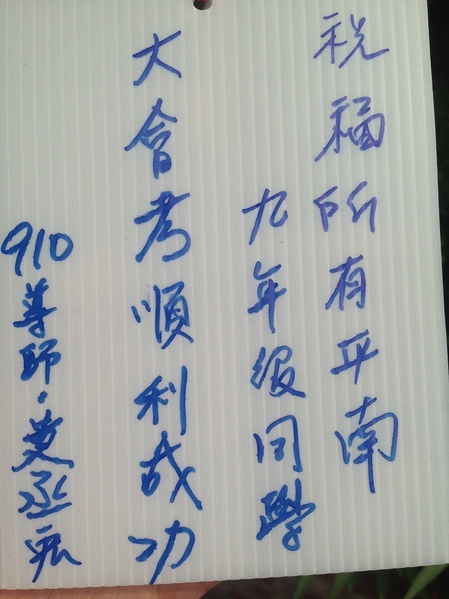 祝福所有平南
九年級同學
大會考順利成功
910導師:黃丞